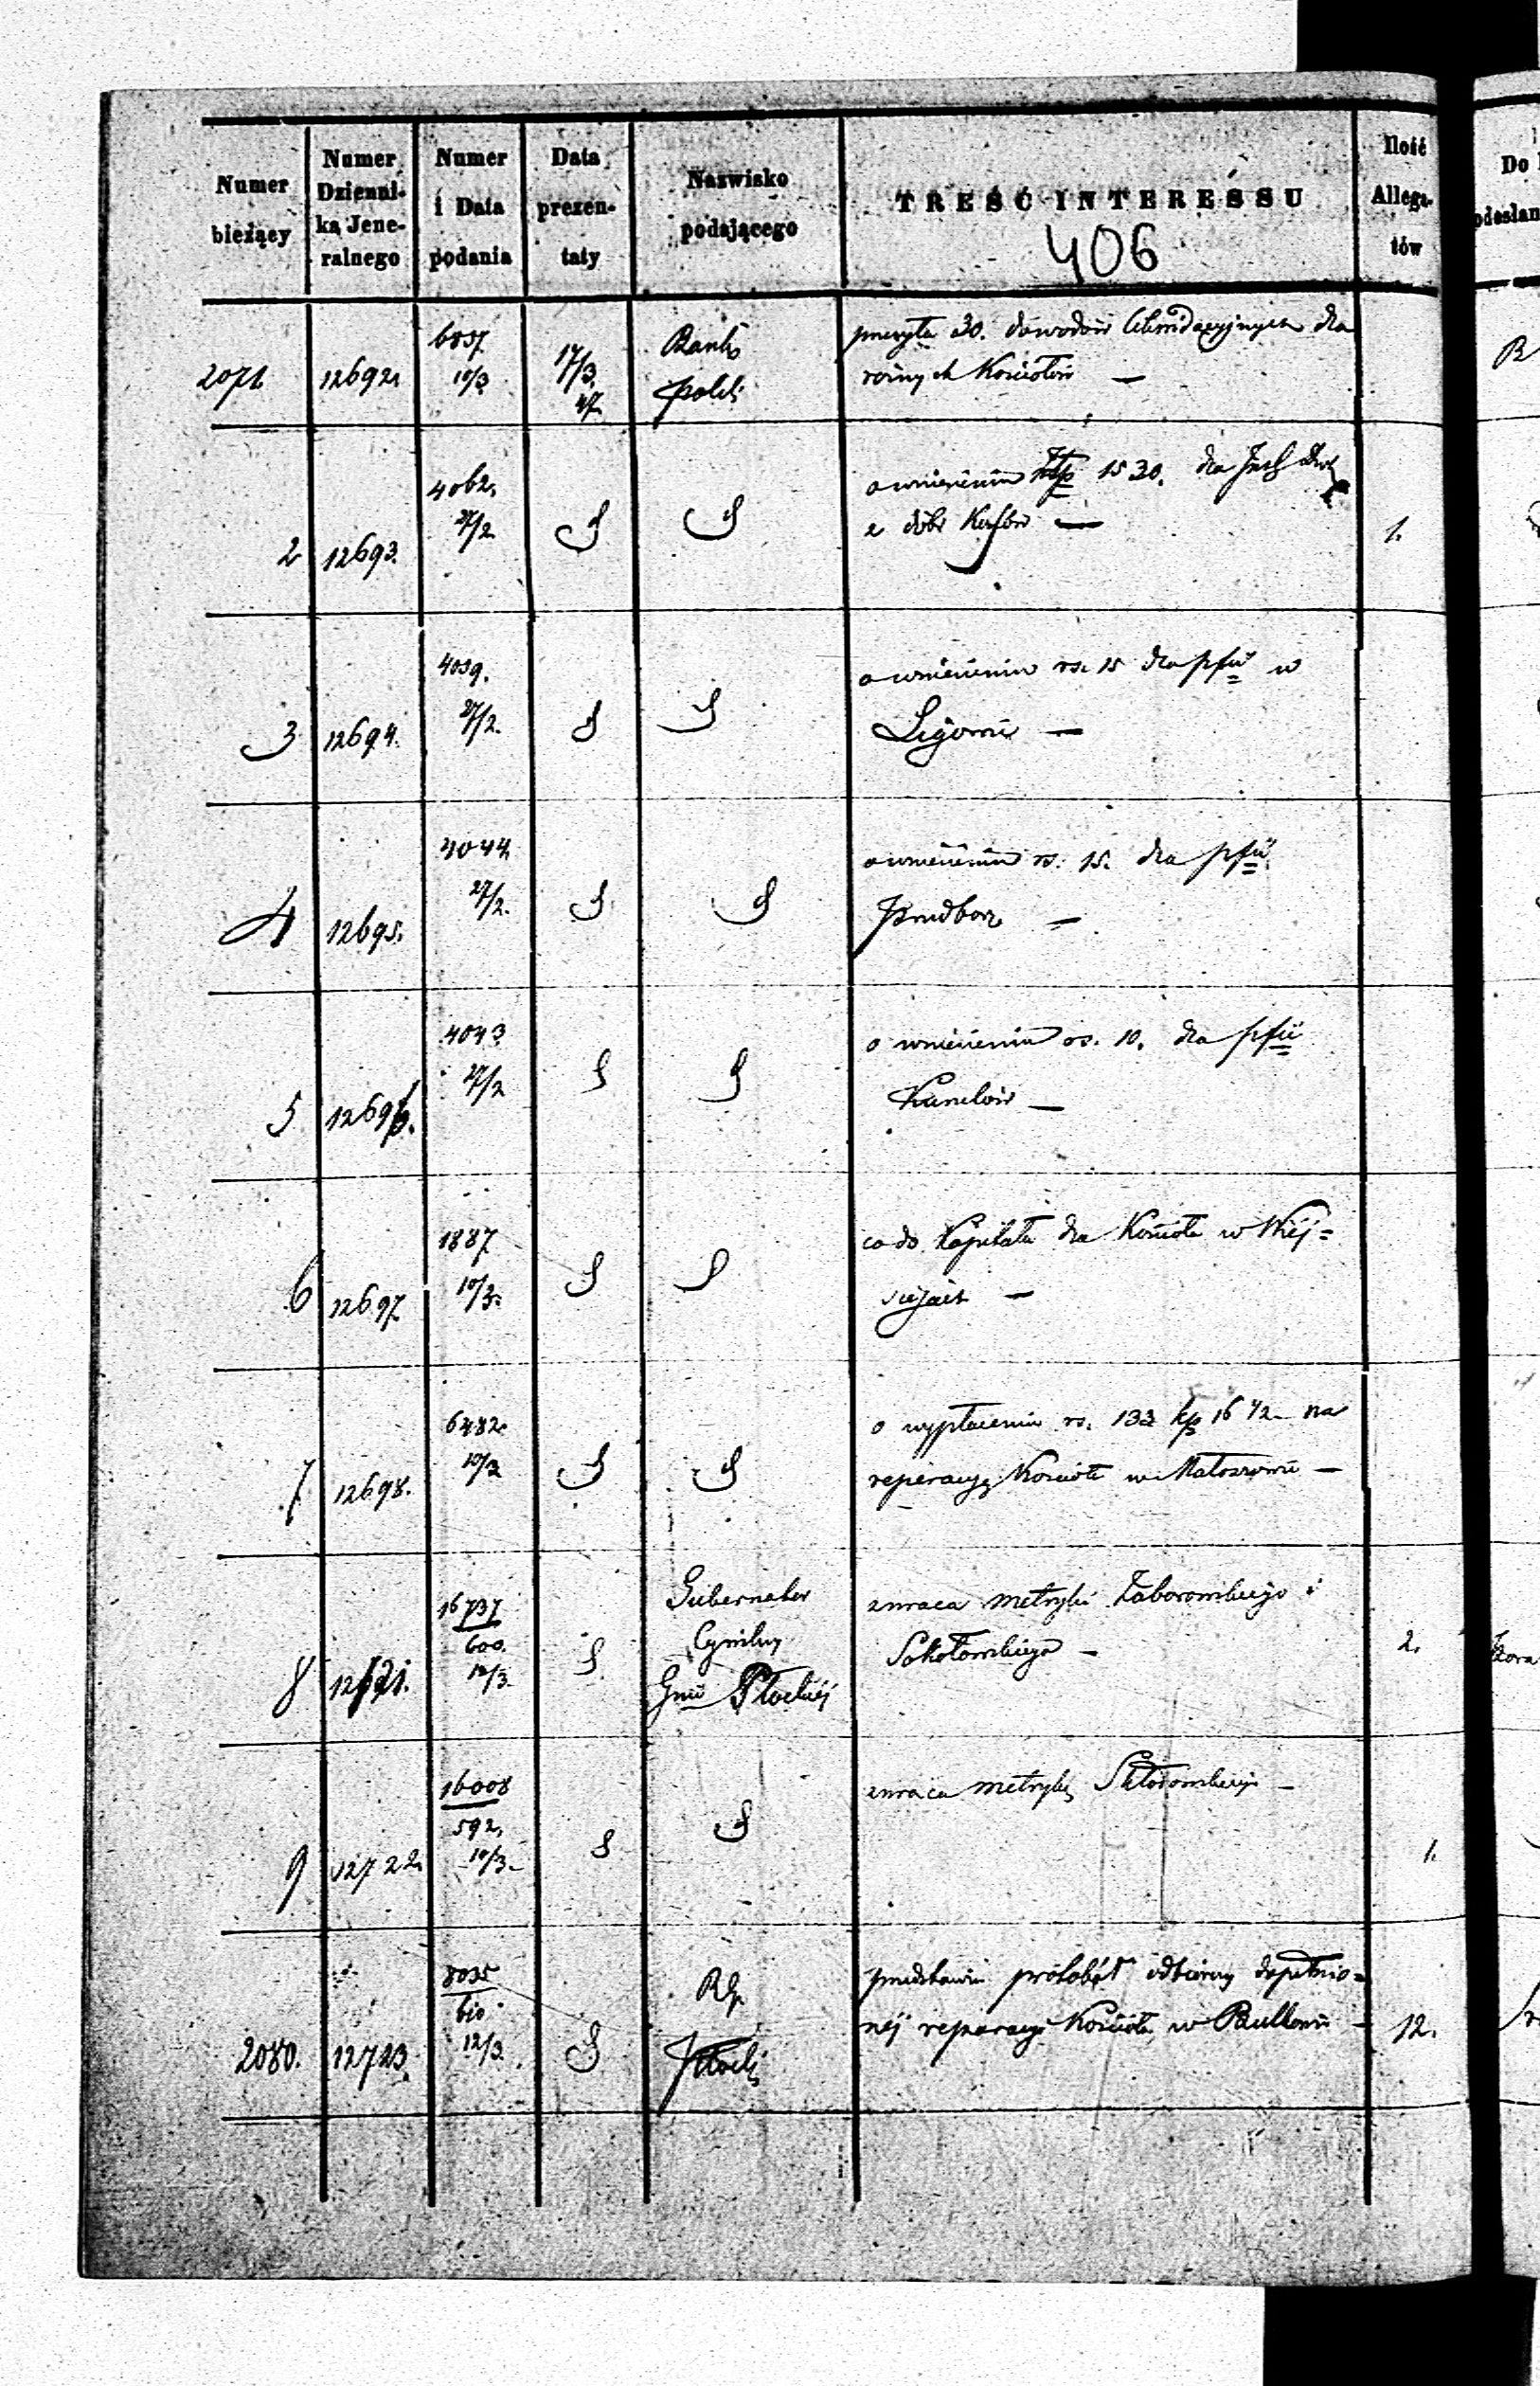 Numer bieżący
Numer Dziennika Jeneralnego
Numer i Data podania
Data prezentaty
Nazwisko podającego
TREŚĆ INTERESSU
Ilość Allegatów
Do
odesłan
406
2071. 12692. 6837 10/3 17/3 47. Bank Polski
przesyła 30. dowodów dla
różnych Kościołów —
2 12693. 4062. 27/2
o wniesieniu 1530. dla
z dóbr — 1.
3 12694. 4039. 27/2.
o wniesieniu rs. 15 dla pfii w
Ligowie —
4 12695. 4044 27/2.
o wniesieniu rs. 15. dla pfii
Przedborz —
5 12696. 4043 27/2
o wniesieniu rs. 10. dla pfii
—
6 12697 1887 10/3.
co do Kapitału dla Kościoła w Wiej=
siejach —
7. 12698. 6482. 10/3
o wypłacenie rs. 133 kp 16 1/2 na
reperacyę Kościoła w —
8 16737 600. 12/3. Gubernator
Cywilny
Gnii Płockiéj
zwraca metryki Zaborowskiego i
Sokołowskiego — 2.
9 12722. 16008 592. 10/3.
zwraca metrykę Skłodowskiego — 1.
2080. 12723. 8035 610 12/3. RG.
Płocki
przedstawia protokół odbiorczy dopełnio=
néj reparacyi Kościoła w — 12.